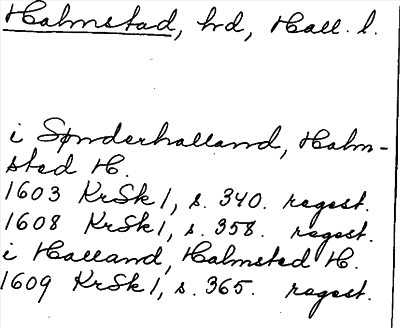 Halmstad, hd, Hall. l.
i Sønderhalland, Halm-
sted H.
1603 KrSk 1, s. 340. regest.
1608 KrSk 1, s. 358. regest.
i Halland, Halmsted H.
1609 KrSk 1, s. 365. regest.